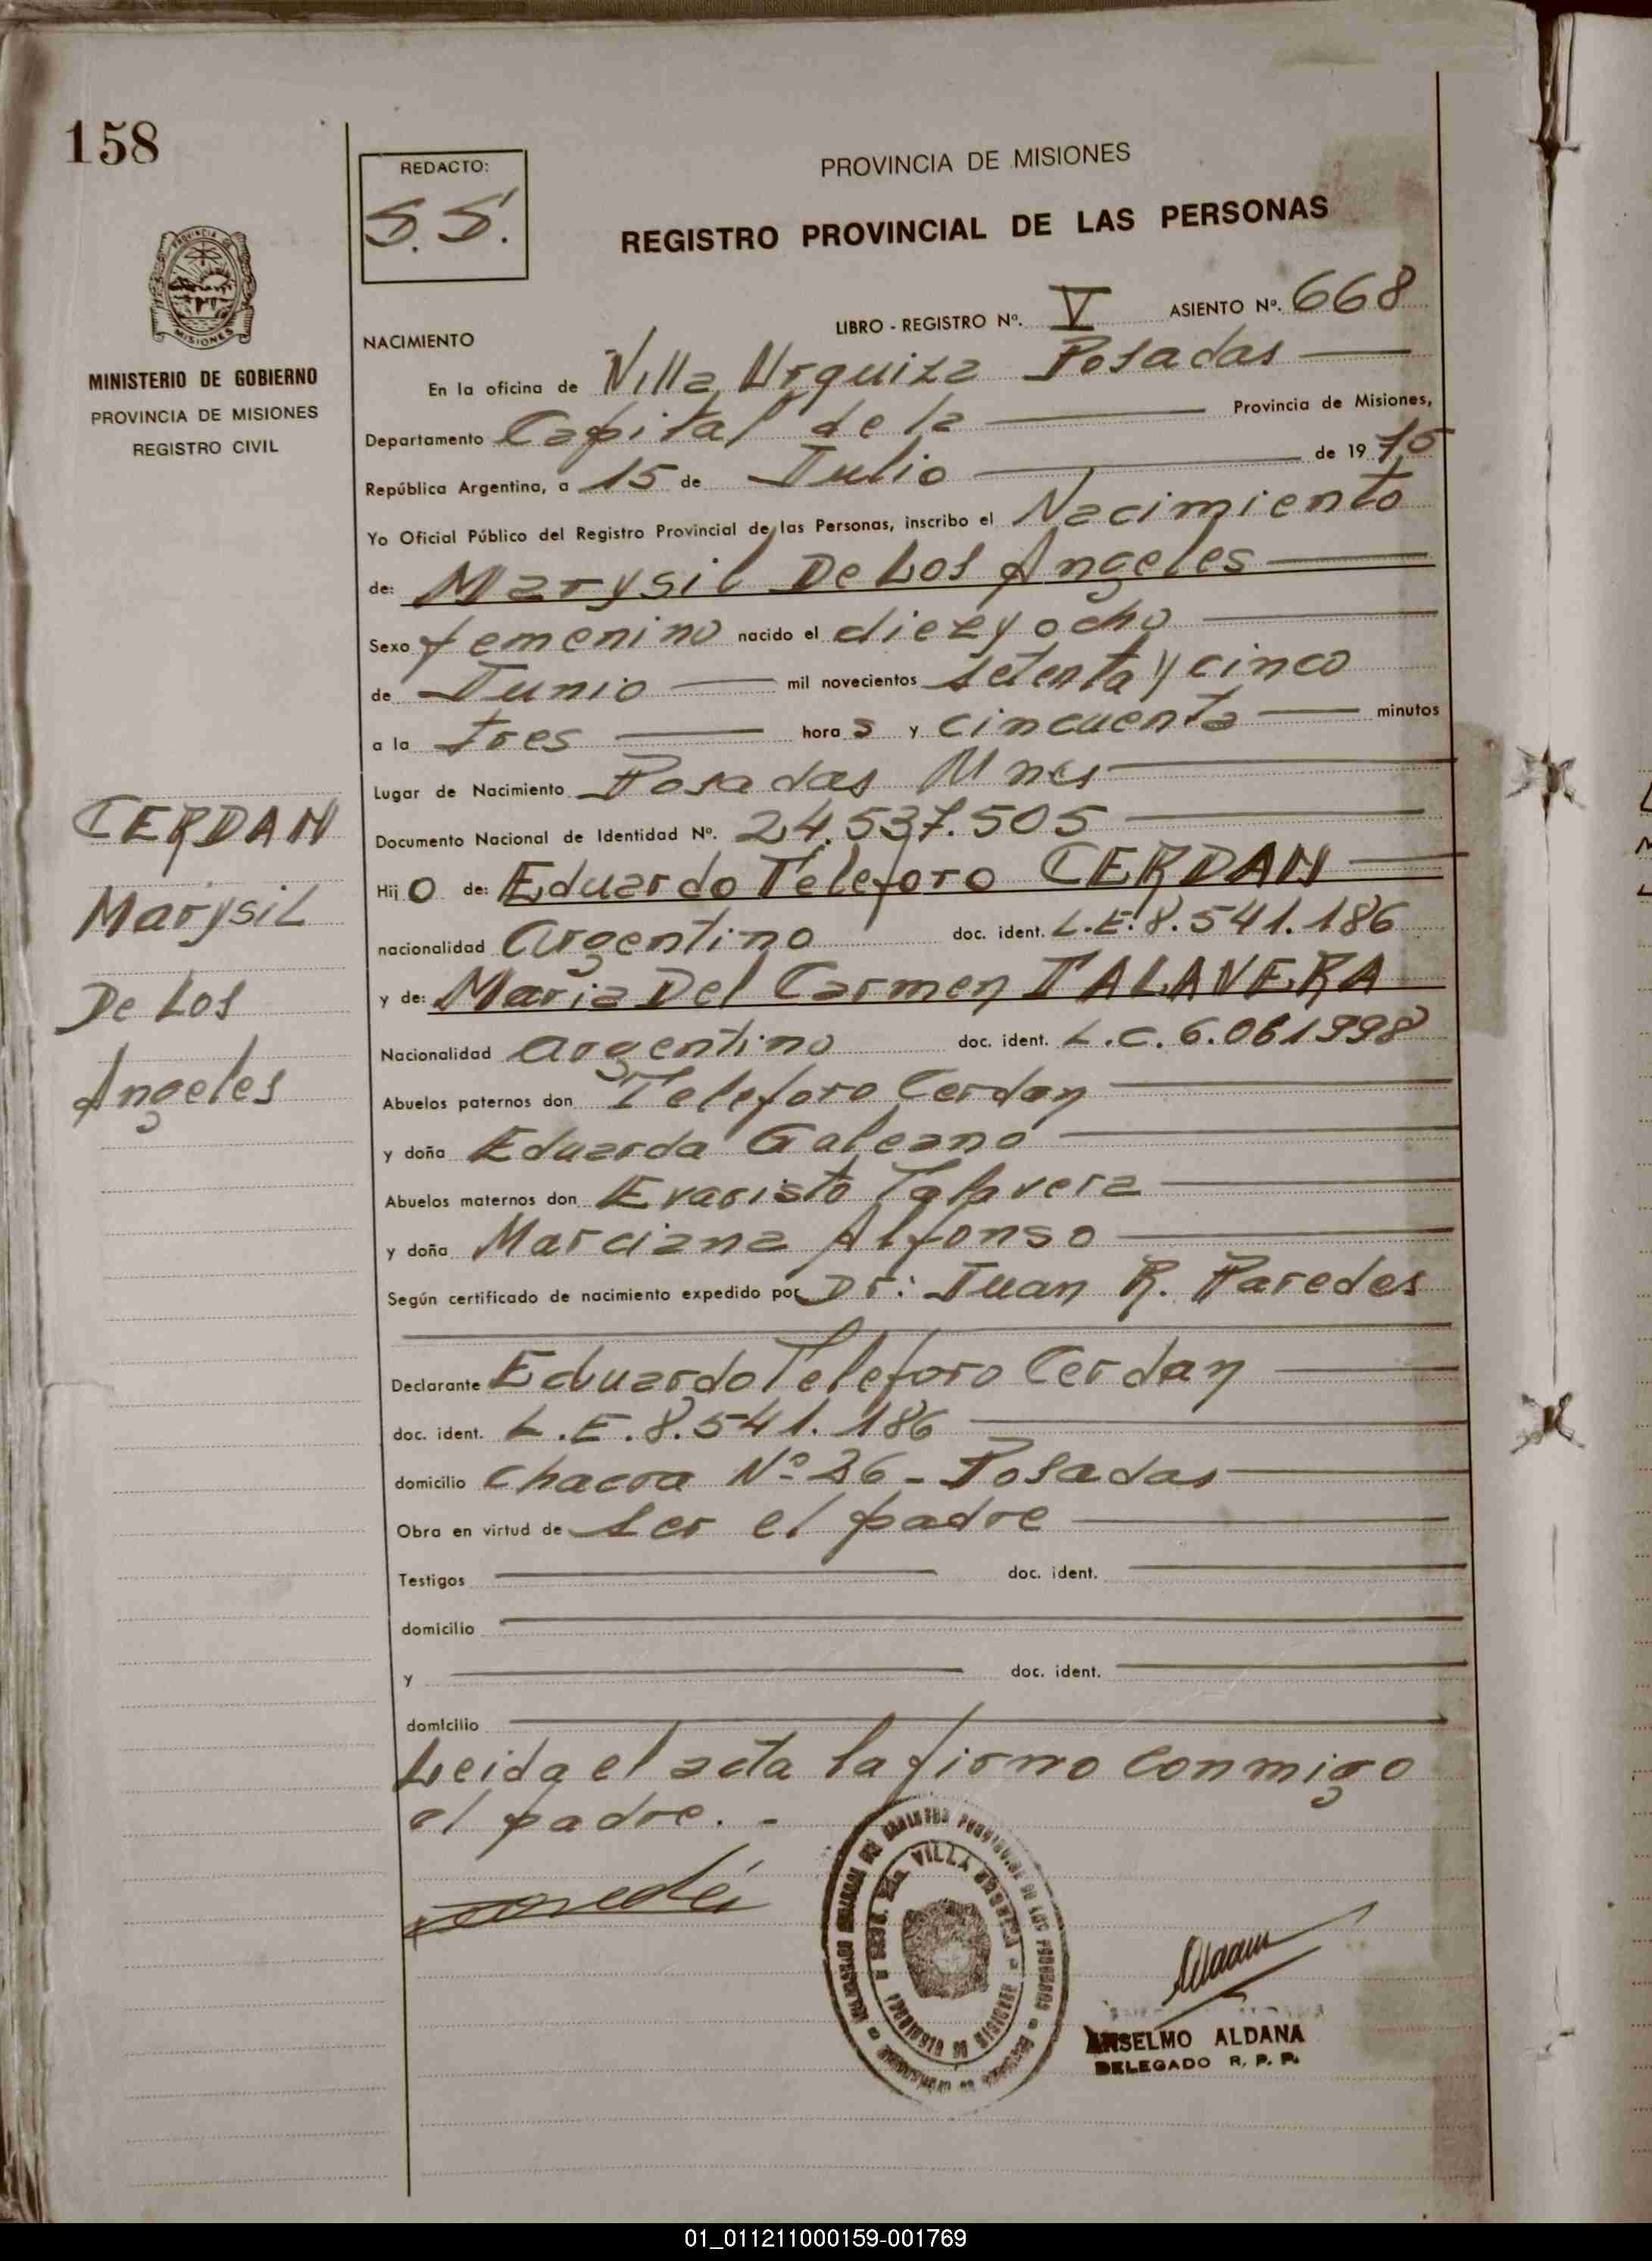 158
REDACTO:
S.S.
PROVINCIA DE MISIONES
REGISTRO PROVINCIAL DE LAS PERSONAS
PROVINCIA DE
MISIONES
MINISTERIO DE GOBIERNO
PROVINCIA DE MISIONES
REGISTRO CIVIL
LIBRO - REGISTRO Nº. V ASIENTO Nº. 668
NACIMIENTO
En la oficina de Villa Urquiza Posadas
Departamento Capital de la Provincia de Misiones,
República Argentina, a 15 de Julio de 1975
Yo Oficial Público del Registro Provincial de las Personas, inscribo el Nacimiento
de: Marysil De Los Angeles
Sexo femenino nacido el diez y ocho
de Junio mil novecientos setenta y cinco
a la tres horas y cincuenta minutos
Lugar de Nacimiento Posadas Mnes
Documento Nacional de Identidad Nº. 24.537.505
Hijo de: Eduardo Teleforo CERDAN
nacionalidad argentino doc. ident. L.E.8.541.186
y de: Maria Del Carmen TALAVERA
Nacionalidad argentino doc. ident. L.C. 6.061998
Abuelos paternos don Teleforo Cerdan
y doña Eduarda Galeano
Abuelos maternos don Evaristo Talavera
y doña Marciana Alfonso
Según certificado de nacimiento expedido por Dr: Juan R. Paredes
Declarante Eduardo Teleforo Cerdan
doc. ident. L.E.8.541.186
domicilio Chacra Nº 26 - Posadas
Obra en virtud de ser el padre
Testigos doc. ident.
domicilio
y doc. ident.
domicilio
Leida el acta la firmo conmigo
el padre. -
CERDAN
Marysil
De Los
Angeles
VILLA
ANSELMO ALDANA
DELEGADO R. P. P.
01_011211000159-001769